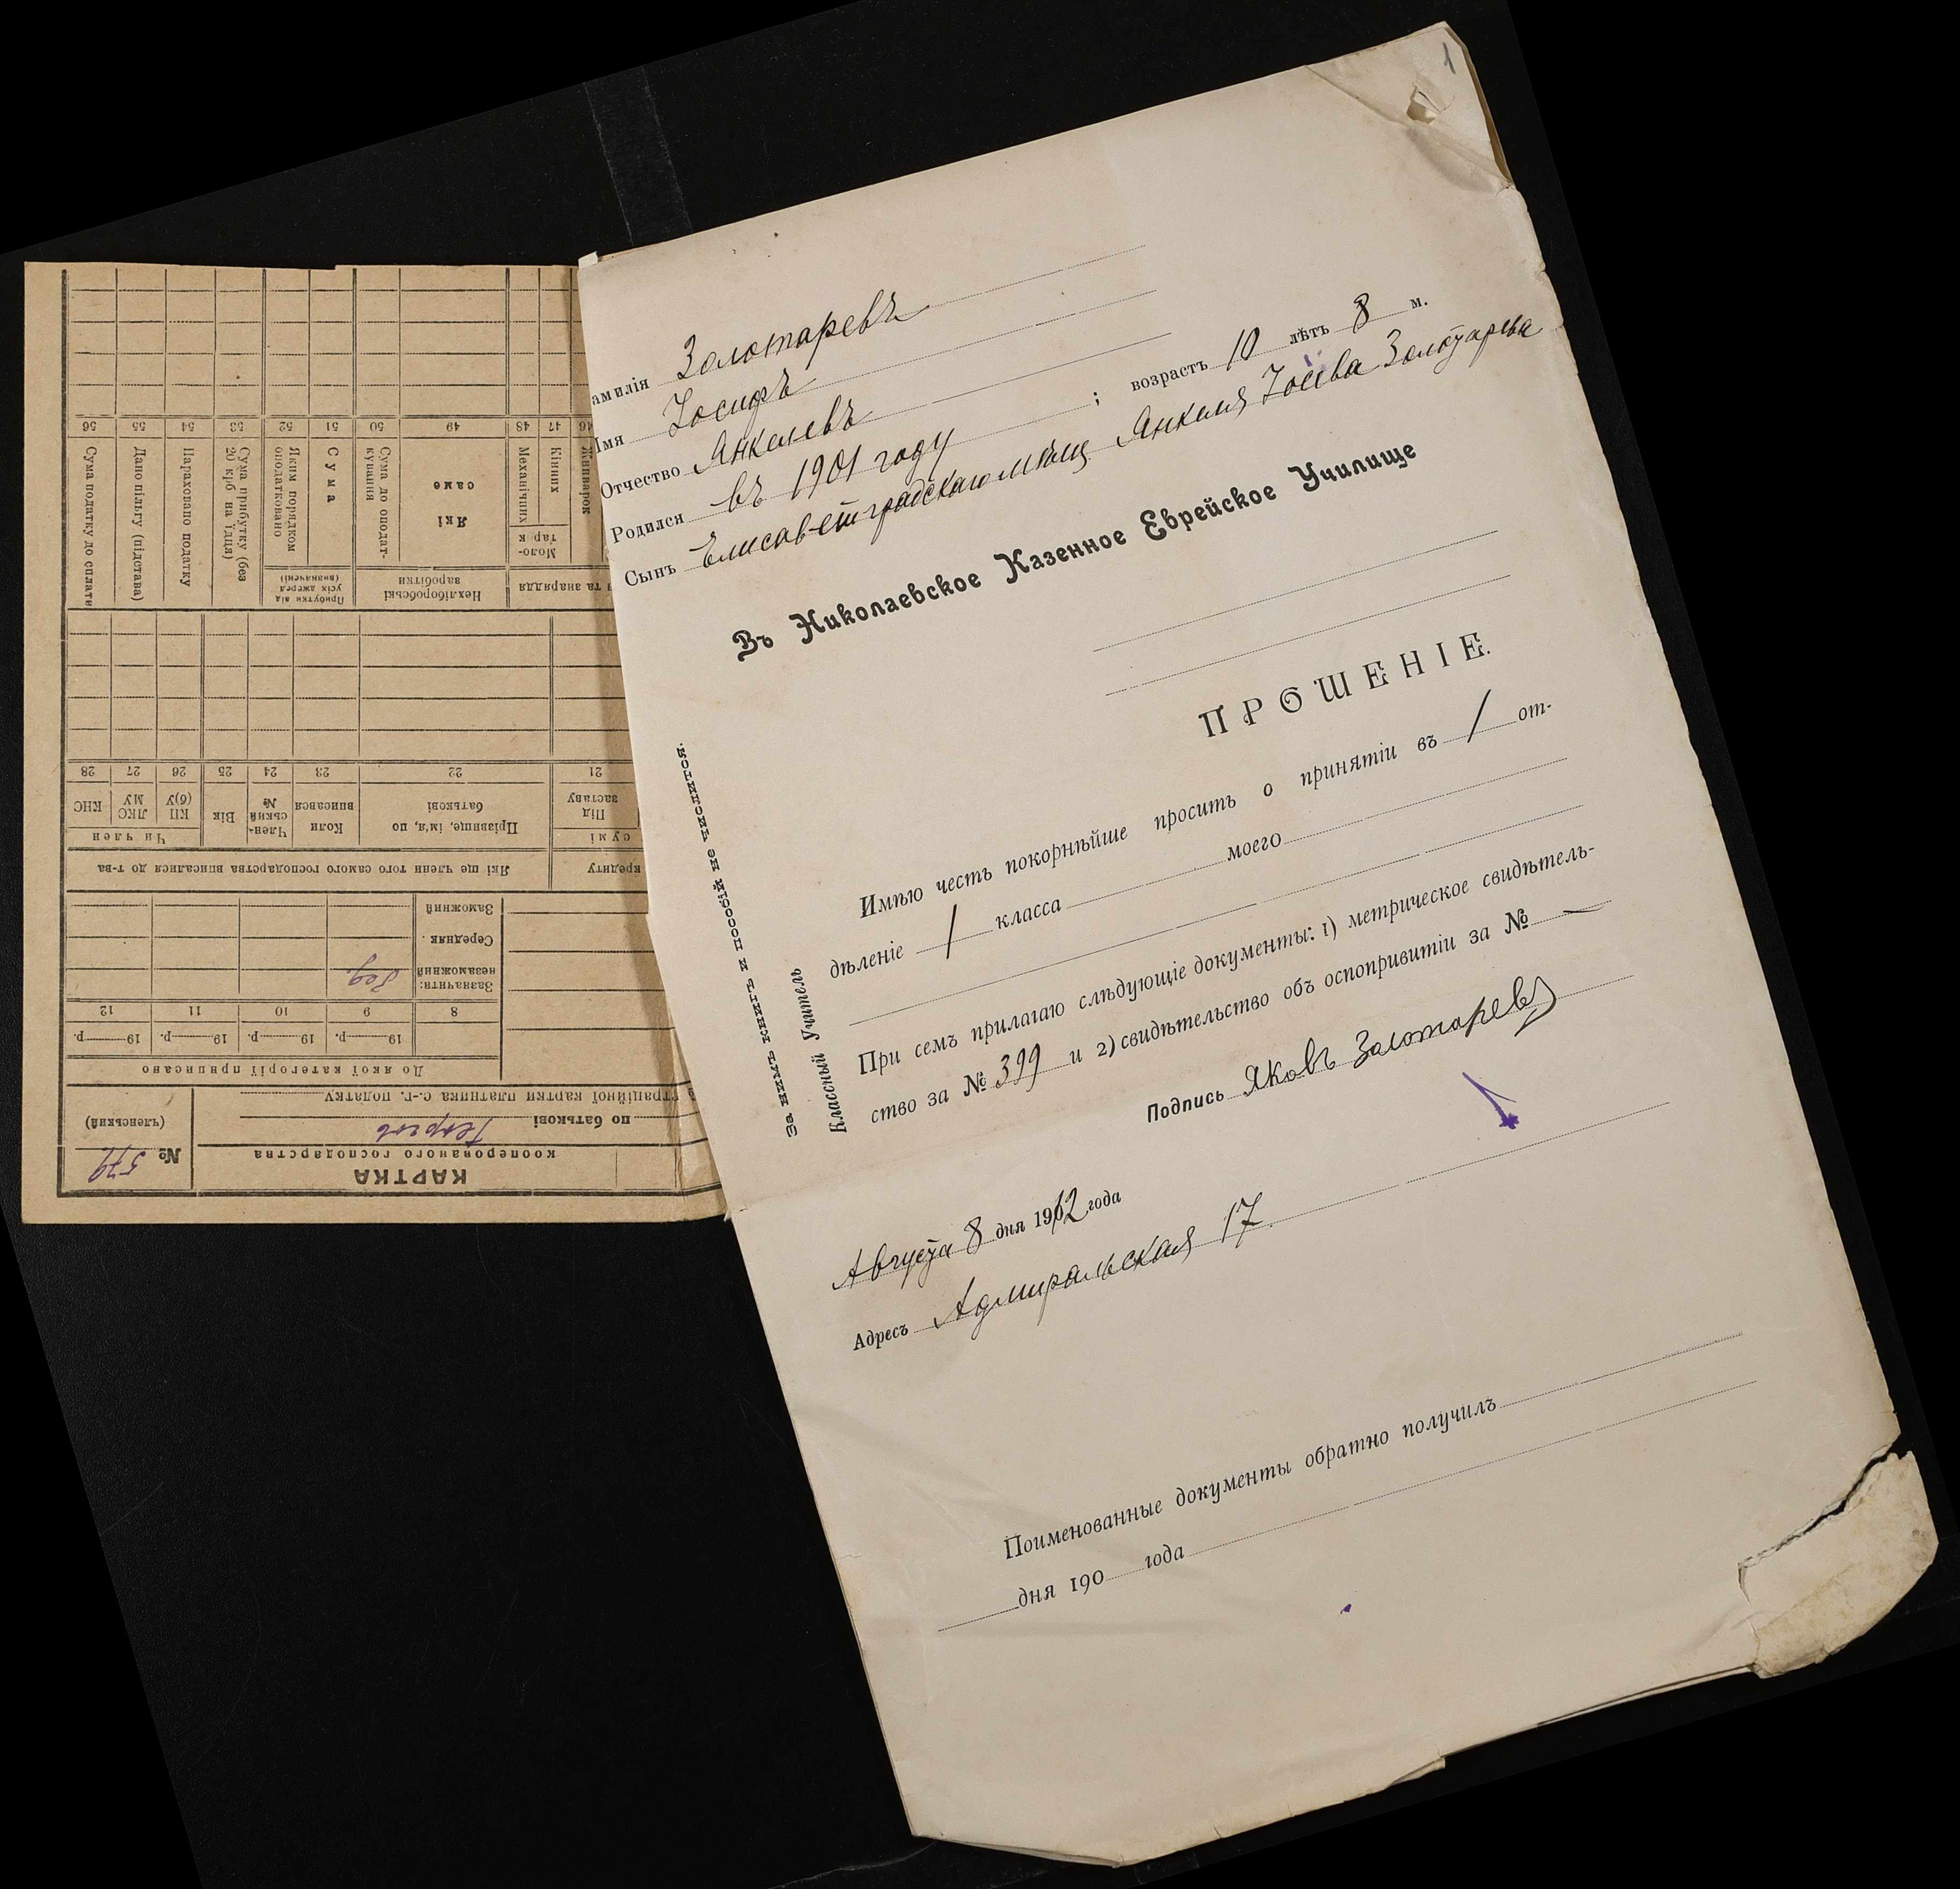 1
амилія Золотаревъ
Імя Іосифъ
Отчество Янкелевъ
Родился въ 1901 году ; возрастъ 10 лѣтъ 8 м.
Сынъ Елисаветградскаго мѣщ Янкеля Іосева Золотарева
Въ Николаевское Казенное Еврейское Училище
ПРОШЕНІЕ.
Имѣю честь покорнѣйше просить о принятіи въ 1 от-
дѣленіе 1 класса моего
При семъ прилагаю слѣдующіе документы: 1) метрическое свидѣтель-
ство за № 399 и 2) свидѣтельство объ оспопривитіи за № —
Подпись Яковъ Золотаревъ
Августа 8 дня 1912 года
Адресъ Адмиральская 17
Поименованные документы обратно получилъ
дня 190 года
За нимъ книгъ и пособій не числится.
Классный Учитель
КАРТКА
кооперованого господарства
№ 579
(членський)
по батькові
страційної картки платника с.-г. податку
До якої категорії приписано
19 р. 19 р. 19 р. 19 р.
8 9 10 11 12
Зазначити:
незаможний
Середняк
Заможний
кредиту
Які ще члени того самого господарства вписалися до т-ва
сумі
Під заставу
Прізвище, ім'я, по батькові
Коли вписався
Член-ський №
Вік
Чи член
КП(б)У
ЛКСМУ
КНС
21 22 23 24 25 26 27 28
та знаряддя
Нехліборобські заробітки
Прибутки від усіх джерел (визначені)
Жниварок
Кінних
Моло-тарк
Механічних
Які саме
Сума до оподат-кування
Сума
Яким порядком оподатковано
Сума прибутку (без 20 крб на їдця)
Параховано податку
Дано пільгу (підстава)
Сума податку до сплати
46 47 48 49 50 51 52 53 54 55 56